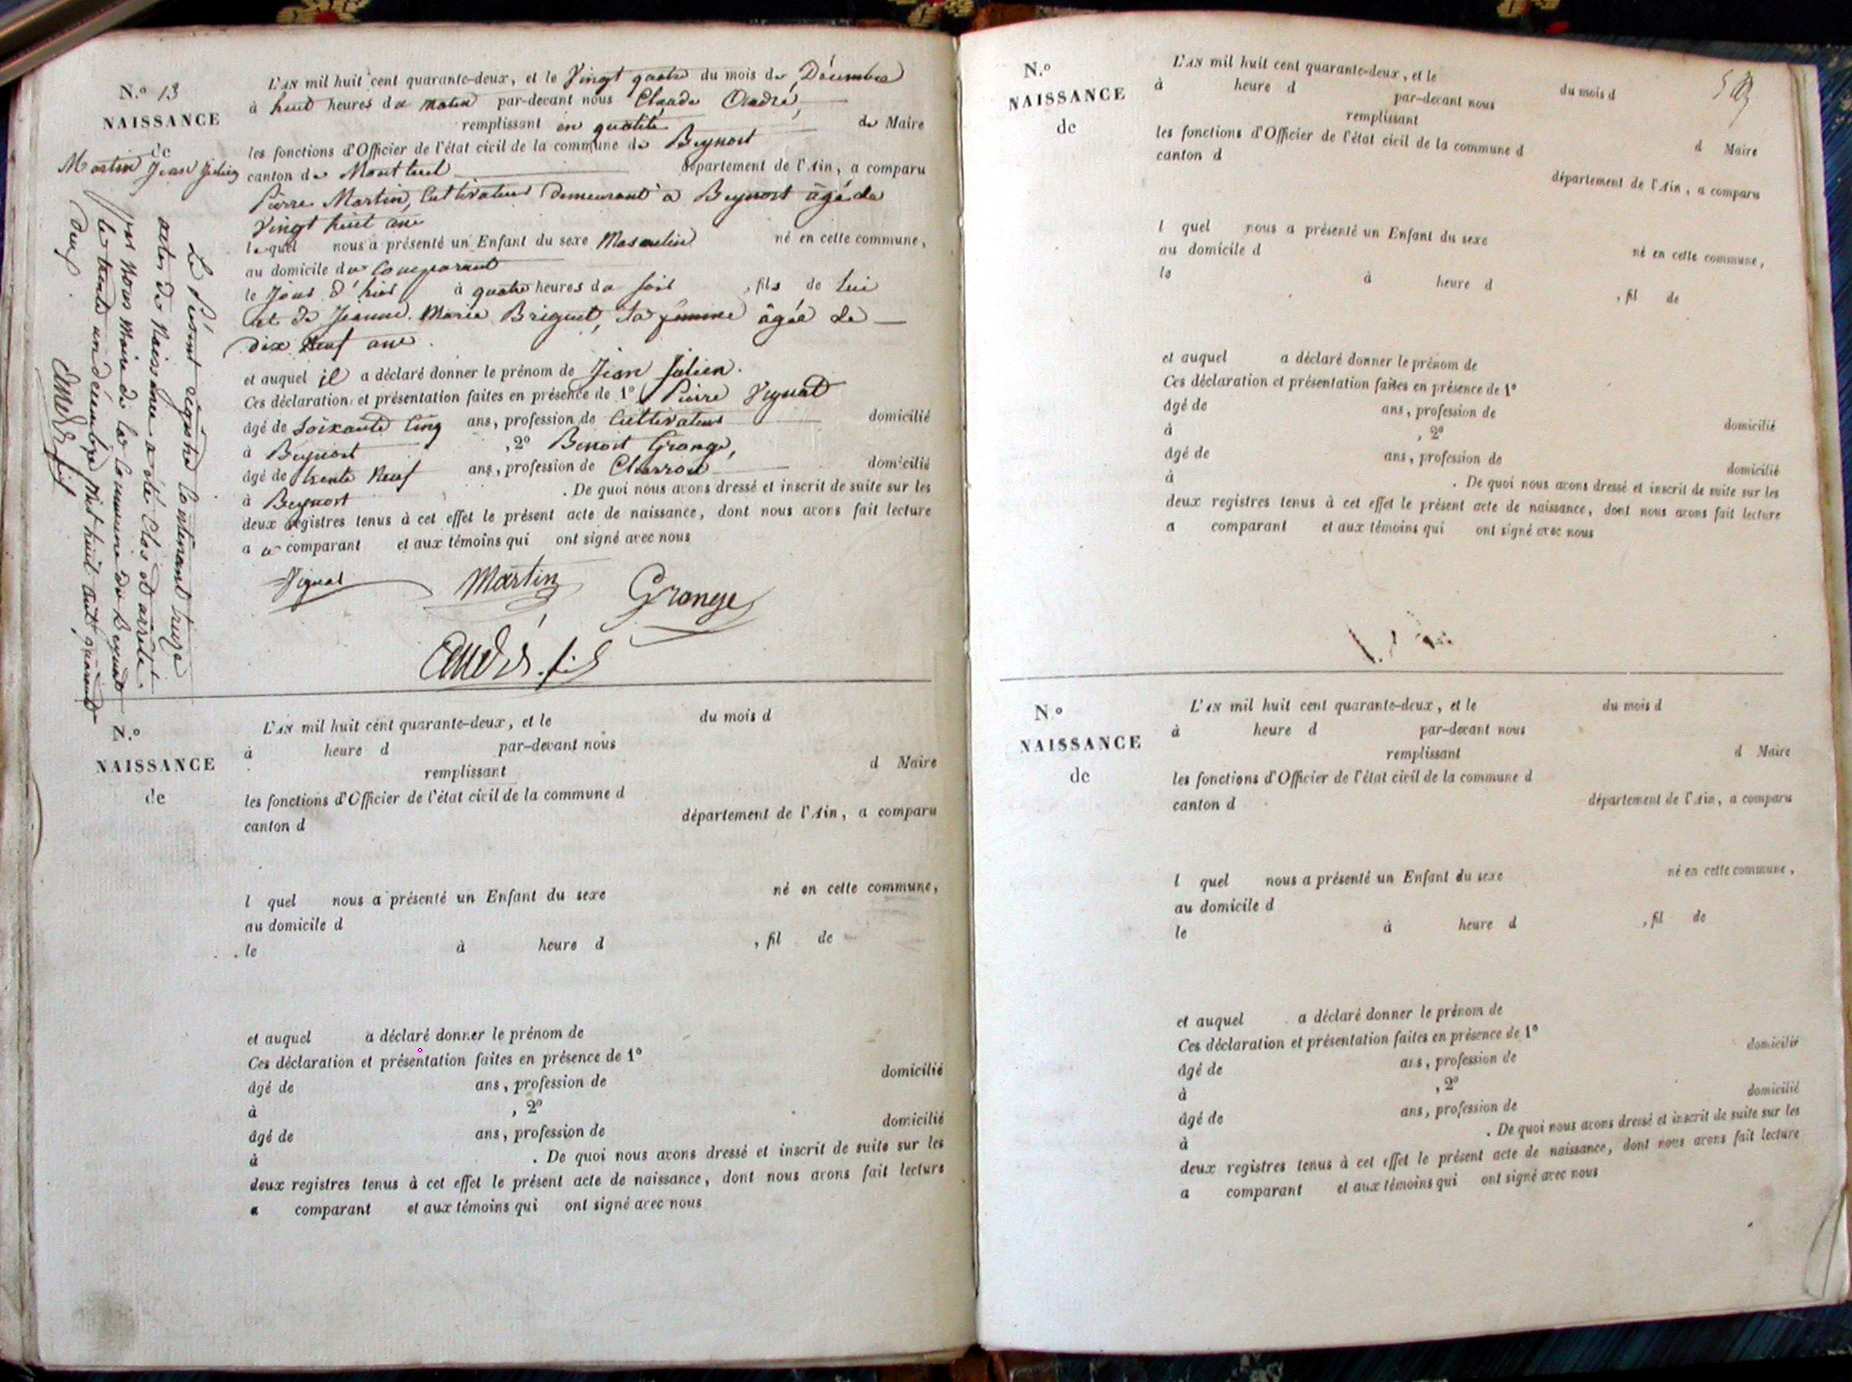 N.º 13
NAISSANCE
de
Martin Jean Julien
L'AN mil huit cent quarante-deux, et le Vingt quatre du mois de Décembre
à huit heures du matin par-devant nous Claude André,
remplissant en qualité de Maire
les fonctions d'Officier de l'état civil de la commune de Beynost
canton de Montluel département de l'Ain, a comparu
Pierre Martin, Cultivateur demeurant à Beynost âgé de
Vingt huit ans
lequel nous a présenté un Enfant du sexe Masculin né en cette commune,
au domicile du Comparant
le Jour d'hier à quatre heures du soir, fils de lui
et de Jeanne Marie Briguet, sa femme âgée de
dix Neuf ans.
et auquel il a déclaré donner le prénom de Jean Julien.
Ces déclaration et présentation faites en présence de 1º Pierre Vignat
âgé de Soixante Cinq ans, profession de Cultivateur domicilié
à Beynost, 2º Benoit Grange,
âgé de trente Neuf ans, profession de Charron domicilié
à Beynost. De quoi nous avons dressé et inscrit de suite sur les
deux registres tenus à cet effet le présent acte de naissance, dont nous avons fait lecture
a u comparant et aux témoins qui ont signé avec nous
Vignat Martin Grange
André fils
Le Présent régistre Contenant treize
actes de Naissance a été Clos et arrêté
par Nous Maire de la Commune de Beynost
le trente un décembre Mil huit cent quarante
deux.
André fils
N.º
NAISSANCE
de
L'AN mil huit cent quarante-deux, et le du mois d
à heure d par-devant nous
remplissant d Maire
les fonctions d'Officier de l'état civil de la commune d
canton d département de l'Ain, a comparu
l quel nous a présenté un Enfant du sexe né en cette commune,
au domicile d
le à heure d , fil de
et auquel a déclaré donner le prénom de
Ces déclaration et présentation faites en présence de 1º
âgé de ans, profession de domicilié
à , 2º
âgé de ans, profession de domicilié
à . De quoi nous avons dressé et inscrit de suite sur les
deux registres tenus à cet effet le présent acte de naissance, dont nous avons fait lecture
a comparant et aux témoins qui ont signé avec nous
N.º
NAISSANCE
de
L'AN mil huit cent quarante-deux, et le du mois d
à heure d par-devant nous
remplissant d Maire
les fonctions d'Officier de l'état civil de la commune d
canton d département de l'Ain, a comparu
l quel nous a présenté un Enfant du sexe né en cette commune,
au domicile d
le à heure d , fil de
et auquel a déclaré donner le prénom de
Ces déclaration et présentation faites en présence de 1º
âgé de ans, profession de domicilié
à , 2º
âgé de ans, profession de domicilié
à . De quoi nous avons dressé et inscrit de suite sur les
deux registres tenus à cet effet le présent acte de naissance, dont nous avons fait lecture
a comparant et aux témoins qui ont signé avec nous
Nº
NAISSANCE
de
L'AN mil huit cent quarante-deux, et le du mois d
à heure d par-devant nous
remplissant d Maire
les fonctions d'Officier de l'état civil de la commune d
canton d département de l'Ain, a comparu
l quel nous a présenté un Enfant du sexe né en cette commune,
au domicile d
le à heure d , fil de
et auquel a déclaré donner le prénom de
Ces déclaration et présentation faites en présence de 1º
âgé de ans, profession de domicilié
à , 2º
âgé de ans, profession de domicilié
à . De quoi nous avons dressé et inscrit de suite sur les
deux registres tenus à cet effet le présent acte de naissance, dont nous avons fait lecture
a comparant et aux témoins qui ont signé avec nous